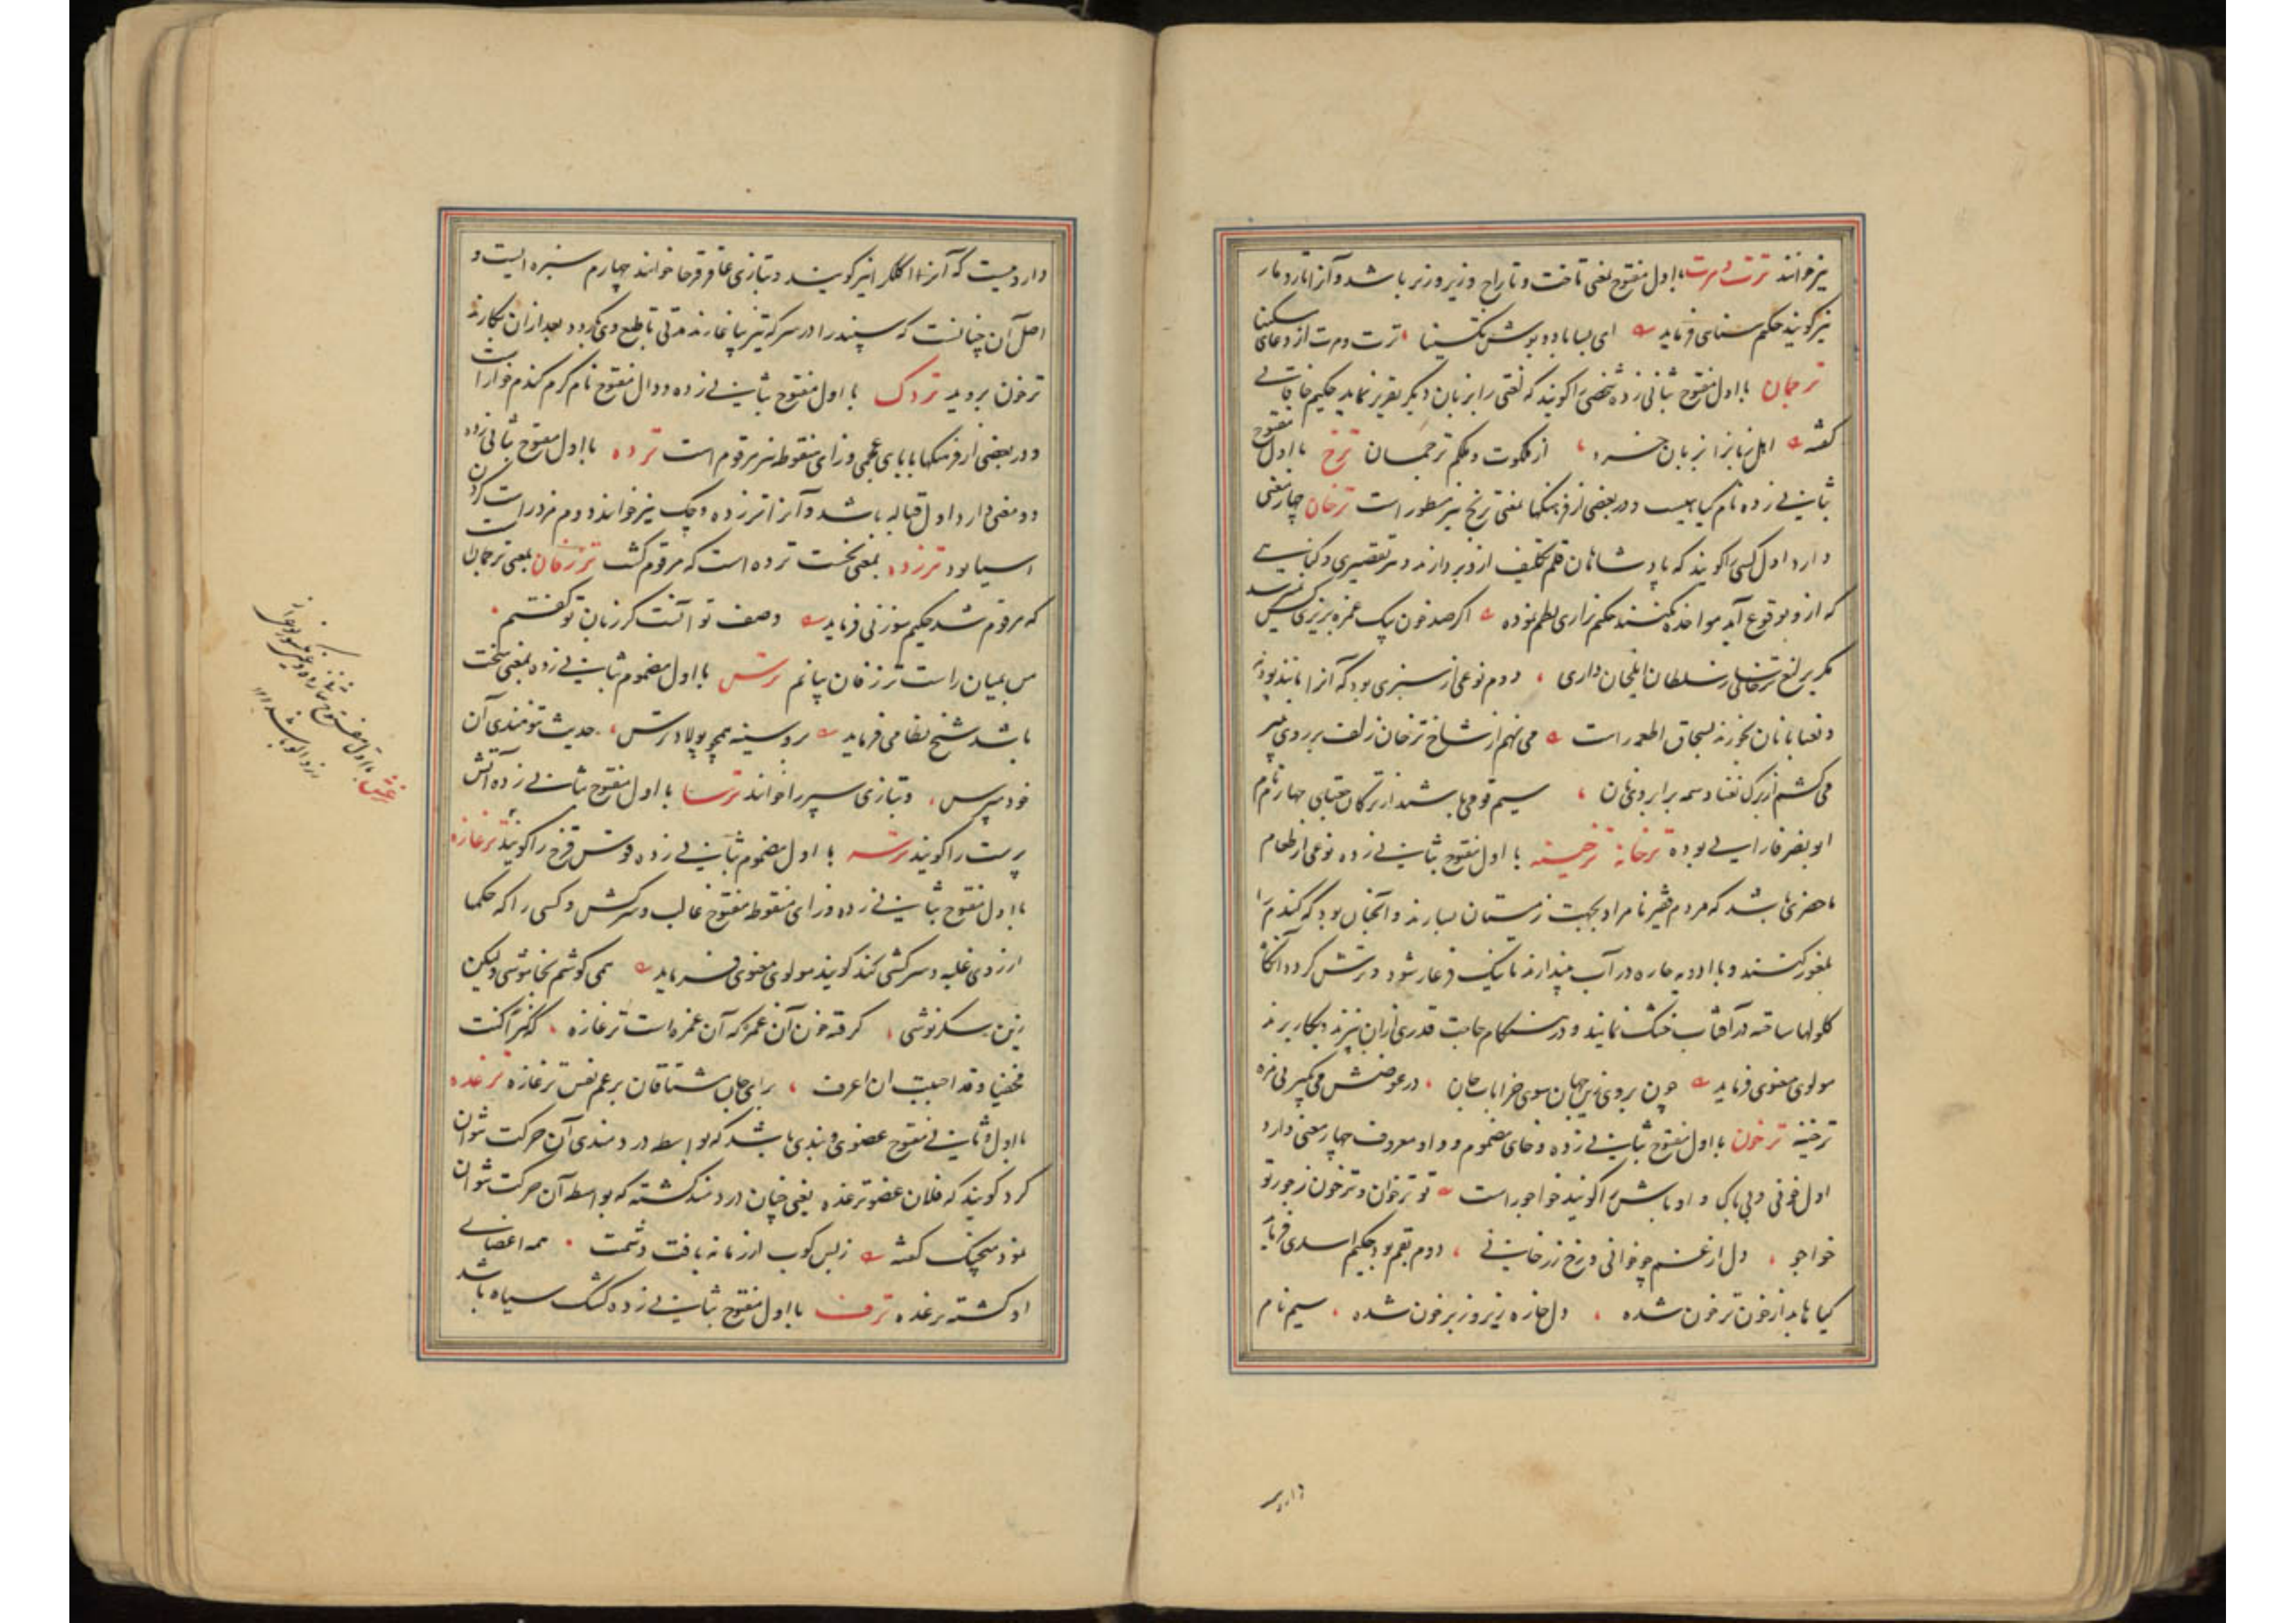 نیز خوانند ترت و مرت با اول مفتوح یعنی تاخت و تاراج و زیر و زبر باشد و آنرا تار و مار
نیز گویند حکیم سنائی فرماید ای بسا باد و بوش تکسینا ترت و مرت از دعای مسکینا
ترجمان با اول مفتوح بثانی زده شخصی را گویند که لغتی را بزبان دیگر تقریر نماید حکیم خاقانی
گفته اهل زبانرا بزبان خرد از ملکوت و ملکم ترجمان ترخ با اول مفتوح
بثانی زده نام گیاهیست و در بعضی از فرهنگها بمعنی ترنج نیز مسطور است ترخان چهار معنی
دارد اول کسی را گویند که پادشاهان قلم تکلیف ازو بردارند و هر تقصیری و گناهی
که ازو بوقوع آید مواخذه نکنند حکیم نزاری نظم نموده اگر صد خون بیک غمزه بریزی کس نپرسد
مگر یرلیغ ترخانی ز سلطان ایلخان داری دوم نوعی از سبزی بود که آنرا مانند پودنه
و نعنا با نان بخورند بسحاق اطعمه راست می نهم از شاخ ترخان زلف بر روی پنیر
می کشم از برگ نعنا وسمه بر ابروی نان سیم قومی باشند از ترکان جغتای چهارم نام
ابو نصر فارابی بوده ترخانه ترخینه با اول مفتوح بثانی زده نوعی از طعام
ماحضری باشد که مردم فقیر نامراد بجهت زمستان بسازند و آنچنان بود که گندم را
بلغور کنند و با ادویه حاره در آب بیندازند تا نیک فرغار شود و ترش گردد آنگاه
گلولها ساخته در آفتاب خشک نمایند و در هنگام حاجت قدری از آن بپزند و بکار برند
مولوی معنوی فرماید چون بروی زین جهان سوی خرابات جان در عوضش می بگیر بی مزه
ترخینه ترخون با اول مفتوح بثانی زده و خای مضموم و واو معروف چهار معنی دارد
اول خونی و بی باک و اوباش را گویند خواجو راست تو ترخوان و ترخون ز جور تو
خواجو دل از غم چو خوانی و رخ زرخانی دوم بقم بود حکیم اسدی فرماید
گیاها بد از خون ترخون شده دل خاره زیر و زبر خون شده سیم نام
دارویی
دارویست که آنرا اکلکرا نیز گویند و بتازی عاقرقرحا خوانند چهارم سبزه ایست و
اصل آن چنانست که سپند را در سرکه تیز بیاغارند مدتی تا طبع وی بگردد بعد از آن بکارند
ترخون بروید تردک با اول مفتوح بثانی زده و دال مفتوح نام کرم گندم خوار است
و در بعضی از فرهنگها با بای عجمی و زای منقوطه نیز مرقوم است ترده با اول مفتوح بثانی زده
دو معنی دارد اول قباله باشد و آنرا ترزده و چک نیز خوانند دوم مزد راست کردن
اسیا بود ترزده بمعنی نخست ترده است که مرقوم گشت ترزفان بمعنی ترجمان است
که مرقوم شد حکیم سوزنی فرماید وصف تو آنست کز زبان تو گفتم
من بمیان راست ترزفان بیانم ترس با اول مضموم بثانی زده بمعنی سخت
باشد شیخ نظامی فرماید بر و سینه همچو پولاد ترس حدیث تنومندی آن
خود مپرس و بتازی سپر را خوانند ترسا با اول مفتوح بثانی زده آتش
پرست را گویند ترسه با اول مضموم بثانی زده قوس قزح را گویند ترغازه
با اول مفتوح بثانی زده و زای منقوطه مفتوح غالب و سرکش و کسی را که حکمها
از روی غلبه و سرکشی کند گویند مولوی معنوی فرماید همی کوشم بخاموشی ولیکن
زین شکرنوشی گرفته خون آن غمز که آن غمزه است ترغازه که کنزا کنت
مخفیا و قد احببت ان اعرف برای جان مشتاقان برغم نفس ترغازه ترغده
با اول و ثانی مفتوح عضوی و بندی باشد که بواسطه دردمندی آن حرکت نتوان
کرد گویند که فلان عضو ترغده یعنی چنان دردمند گشته که بواسطه آن حرکت نتوان
نمود منجیک گفته زبس کوب از زمانه یافت دشمنت همه اعضای
او گشته ترغده ترف با اول مفتوح بثانی زده کشک سیاه باشد
با اول مفتوح بثانی زده